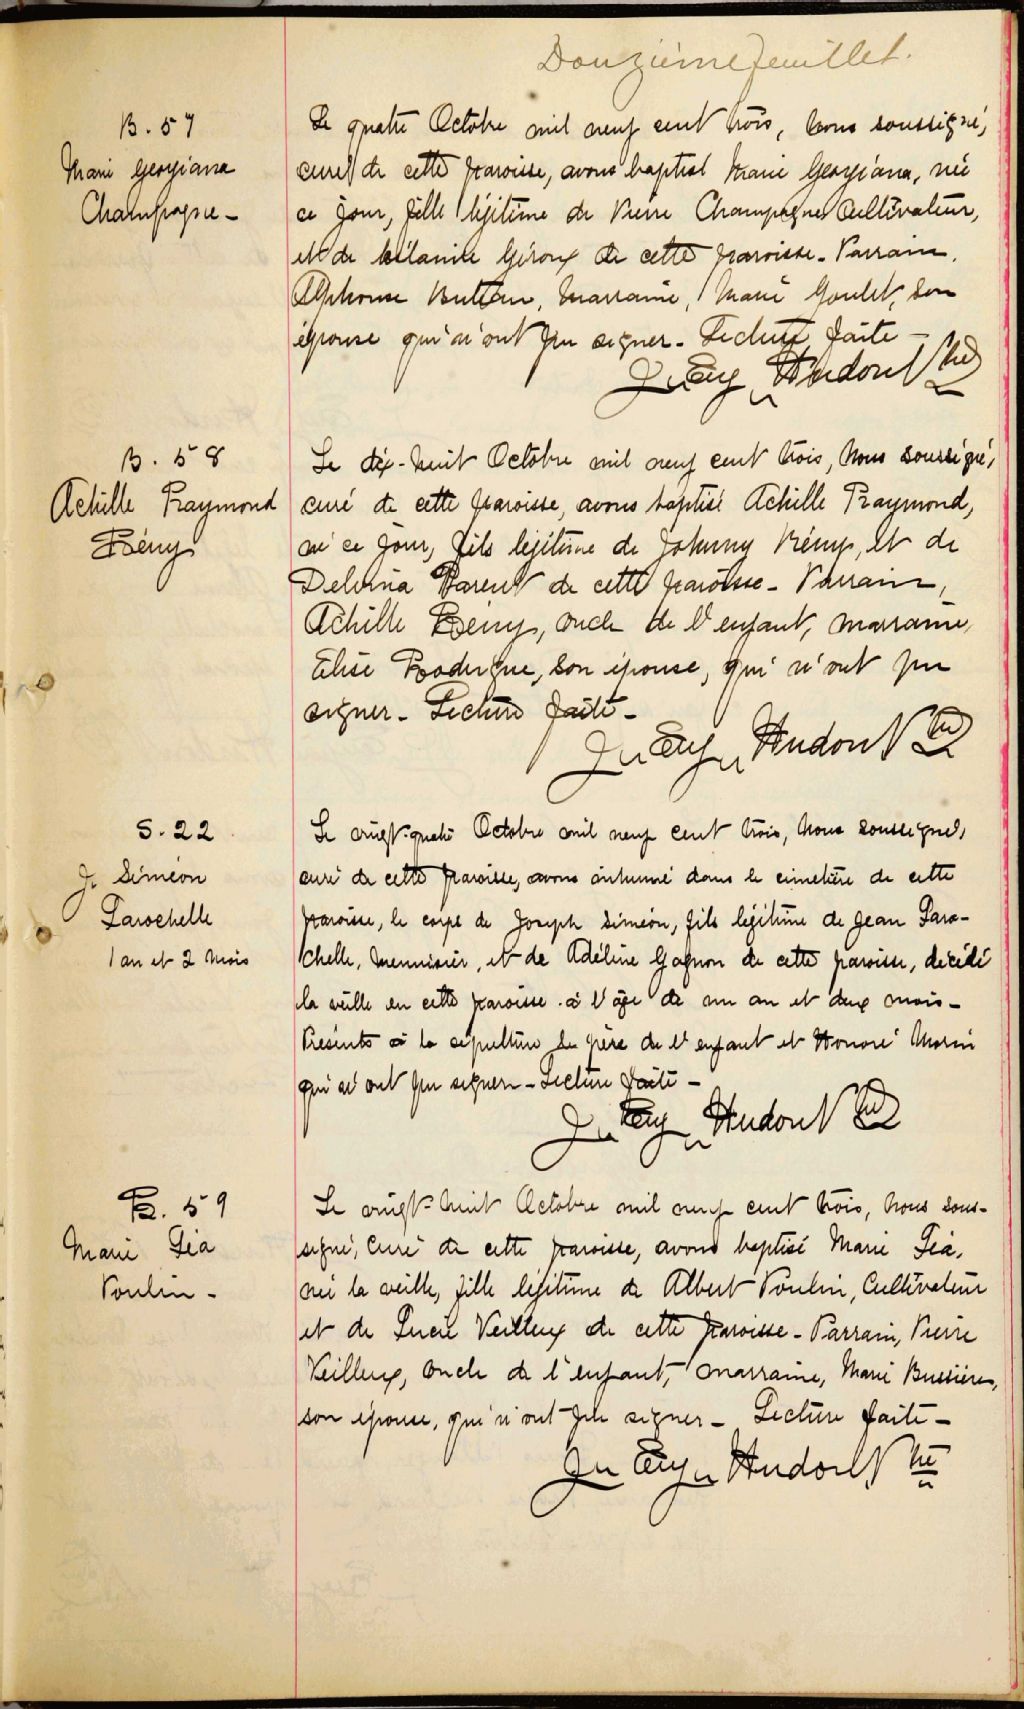 Douzième feuillet.
B. 57
Marie Georgiana
Champagne -
Le quatre Octobre mil neuf cent trois, nous soussigné,
curé de cette paroisse, avons baptisé Marie Georgiana, née
ce jour, fille légitime de Pierre Champagne, Cultivateur,
et de Mélanie Giroux de cette paroisse - Parrain,
Alphonse Butteau, Marraine, Marie Goulet, son
épouse qui n'ont pu signer - Lecture faite -
J. Eug. Hudon Ptre
B. 58
Achille Raymond
Rémy
Le dix-huit Octobre mil neuf cent trois, Nous soussigné,
curé de cette paroisse, avons baptisé Achille Raymond,
né ce jour, fils légitime de Johnny Rémy, et de
Delvina Parent de cette paroisse - Parrain,
Achille Rémy, oncle de l'enfant, marraine,
Elise Rodrigue, son épouse, qui n'ont pu
signer - Lecture faite -
J. Eug. Hudon Ptre
S. 22
J. Siméon
Larochelle
1 an et 2 mois
Le vingt-quatre Octobre mil neuf cent trois, Nous soussigné,
curé de cette paroisse, avons inhumé dans le cimetière de cette
paroisse, le corps de Joseph Siméon, fils légitime de Jean Laro-
chelle, menuisier, et de Adéline Gagnon de cette paroisse, décédé
la veille en cette paroisse à l'âge de un an et deux mois -
Présents à la sépulture le père de l'enfant et Honoré Morin
qui n'ont pu signer - Lecture faite -
J. Eug. Hudon Ptre
B. 59
Marie Léa
Poulin -
Le vingt-huit Octobre mil neuf cent trois, nous sous-
signé, Curé de cette paroisse, avons baptisé Marie Léa,
née la veille, fille légitime de Albert Poulin, Cultivateur
et de Lucie Veilleux de cette paroisse - Parrain, Pierre
Veilleux, oncle de l'enfant, marraine, Marie Bussières,
son épouse, qui n'ont pu signer - Lecture faite -
J. Eug. Hudon Ptre